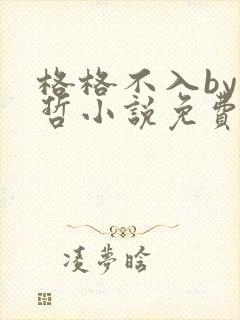 格格不入by
哲小說免費
凌夢晗